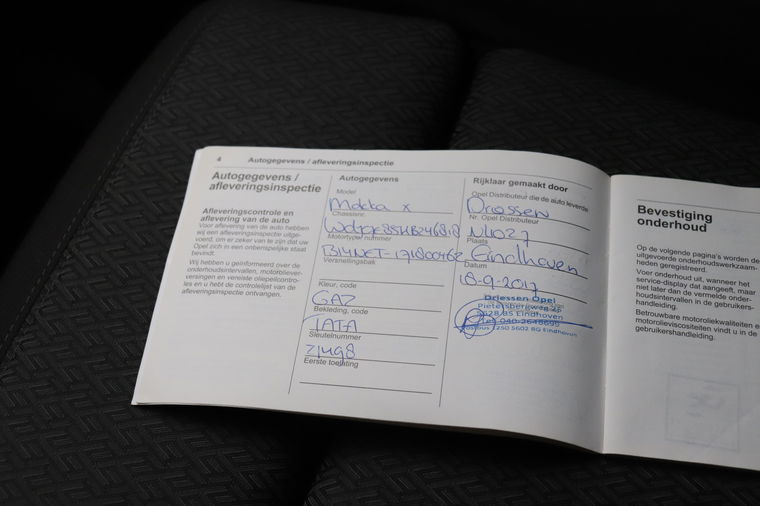 4
Autogegevens / afleveringsinspectie
Autogegevens /
afleveringsinspectie
Afleveringscontrole en
aflevering van de auto
Voor aflevering van de auto hebben
wij een afleveringsinspectie uitge-
voerd, om er zeker van te zijn dat uw
Opel zich in een onberispelijke staat
bevindt.
Wij hebben u geïnformeerd over de
onderhoudsintervallen, motoriblever-
versingen en vereiste oliepeilcontro-
les en u hebt de controlelijst van de
afleveringsinspectie ontvangen.
Autogegevens
Model
Mokka x
Chassisnr.
Motortype/ nummer
B14NET-171800462
Versnellingsbak
Kleur, code
GAZ
Bekleding, code
TATA
Sleutelnummer
Eerste toelating
Rijklaar gemaakt door
Opel Distributeur die de auto leverde
Driessen
Nr. Opel Distributeur
NL1027
Plaats
Eindhoven
Datum
18-9-2017
Driessen Opel
Pietersbergweg
5628 BS Eindhoven
Postbus 1250 5602 BG Eindhoven
Bevestiging
onderhoud
Op de volgende pagina's worden de
uitgevoerde onderhoudswerkzaam-
heden geregistreerd.
Voor onderhoud uit, wanneer het
service-display dat aangeeft, maar
niet later dan de vermelde onder-
houdsintervallen in de gebruikers-
handleiding.
Betrouwbare motoroliekwaliteiten en
motorolieviscositeiten vindt u in de
gebruikershandleiding.